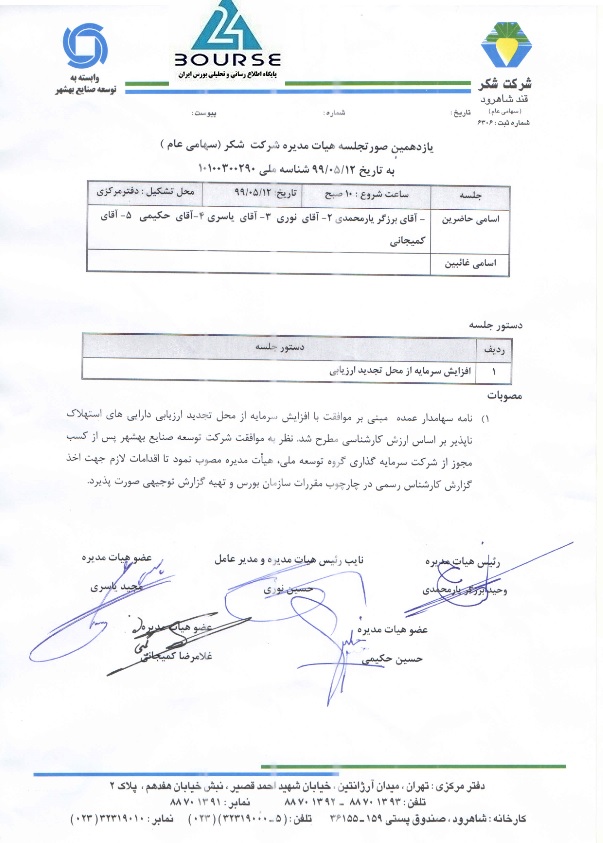 24
BOURSE
پایگاه اطلاع رسانی و تحلیلی بورس ایران
وابسته به
توسعه صنایع بهشهر
شرکت شکر
قند شاهرود
(سهامی عام)
شماره ثبت: ۶۳۰۶
تاریخ: شماره: پیوست:
یازدهمین صورتجلسه هیات مدیره شرکت شکر (سهامی عام)
به تاریخ ۹۹/۰۵/۱۲ شناسه ملی ۱۰۱۰۰۳۰۰۲۹۰
جلسه ساعت شروع : ۱۰ صبح تاریخ: ۹۹/۰۵/۱۲ محل تشکیل : دفترمرکزی
اسامی حاضرین – آقای برزگر یارمحمدی ۲- آقای نوری ۳- آقای یاسری ۴-آقای حکیمی ۵- آقای
کمیجانی
اسامی غائبین
دستور جلسه
ردیف دستور جلسه
۱ افزایش سرمایه از محل تجدید ارزیابی
مصوبات
۱) نامه سهامدار عمده مبنی بر موافقت با افزایش سرمایه از محل تجدید ارزیابی دارایی های استهلاک
ناپذیر بر اساس ارزش کارشناسی مطرح شد. نظر به موافقت شرکت توسعه صنایع بهشهر پس از کسب
مجوز از شرکت سرمایه گذاری گروه توسعه ملی، هیأت مدیره مصوب نمود تا اقدامات لازم جهت اخذ
گزارش کارشناس رسمی در چارچوب مقررات سازمان بورس و تهیه گزارش توجیهی صورت پذیرد.
رئیس هیات مدیره نایب رئیس هیات مدیره و مدیر عامل عضو هیات مدیره
وحید برزگر یارمحمدی حسین نوری مجید یاسری
عضو هیات مدیره عضو هیات مدیره
حسین حکیمی غلامرضا کمیجانی
دفتر مرکزی : تهران، میدان آرژانتین، خیابان شهید احمد قصیر، نبش خیابان هفدهم، پلاک ۲
تلفن: ۸۸۷۰۱۳۹۳ – ۸۸۷۰۱۳۹۲ نمابر: ۸۸۷۰۱۳۹۱
کارخانه: شاهرود، صندوق پستی ۱۵۹-۳۶۱۵۵ تلفن: (۵-۳۲۳۱۹۰۰۰)(۰۲۳) نمابر: ۳۲۳۱۹۰۱۰(۰۲۳)